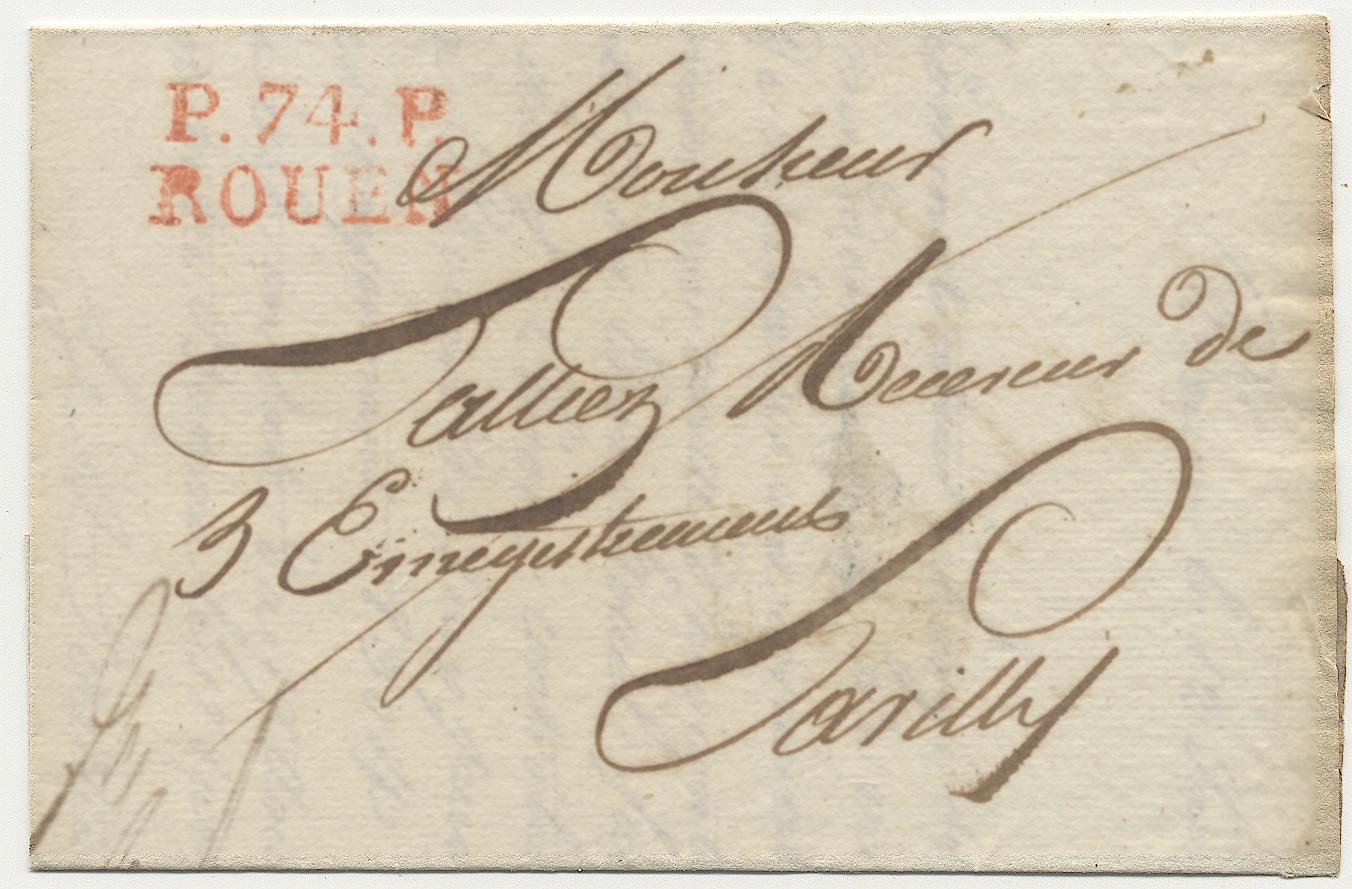 P.74.P.
ROUEN
Monsieur
Tallier Receveur de
Enregistrements
Pavilly